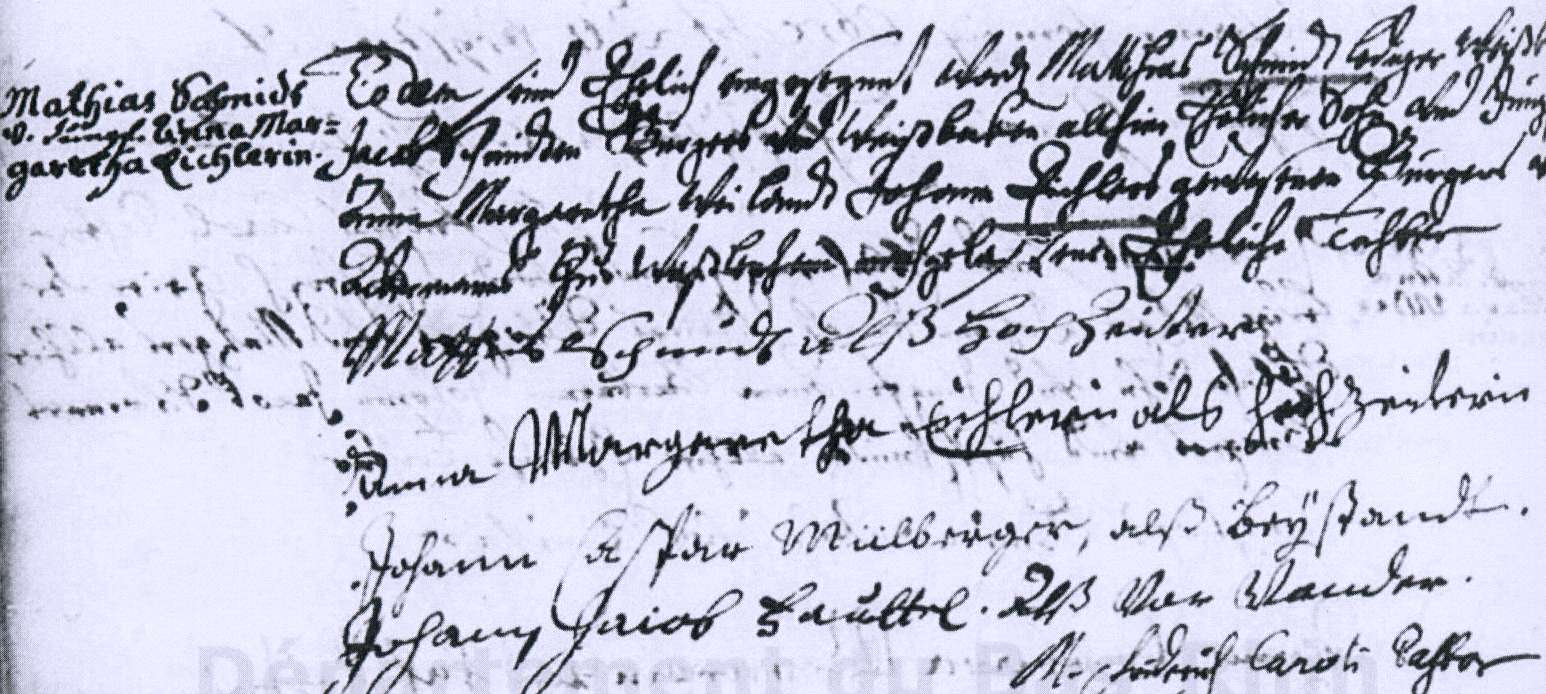 Mathias Schmidt
v. Jungf. Anna Mar=
garetha Eichlerin.
Eodem sind Ehelich eingesegnet word. Matthias Schmidt lediger
Jacob Schmidten Burgers und Weißbecken allhier Ehelicher Sohn und Jungf
Anna Margaretha Weilandt Johann Eichlers gewesenen Burgers
Ackermanns zue nachgelassene Eheliche Tochter
Mathis Schmidt Alß Hochzeiter
Anna Margaretha Eichlerin als Hochzeiterin
Johann Caspar Mülberger, alß beystandt.
Johann Jacob Alß Ver Wander.
M. Friderich Caroli Pastor